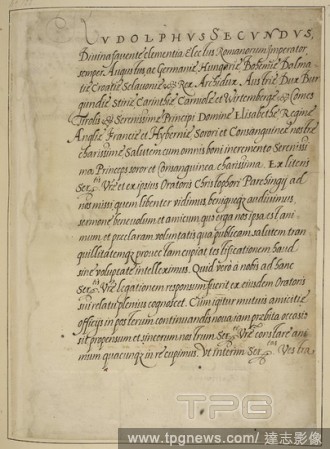 RVDOLPHVS SECVNDVS,
Divina favente clementia Electus Romanorum Imperator
semper Augustus, ac Germaniæ, Hungariæ, Bohemiæ, Dalma
tiæ, Croatiæ, Sclavoniæ &c. Rex. Archidux Austriæ, Dux Bur
gundiæ, Stiriæ, Carinthiæ, Carniolæ et Wirtembergæ &c. Comes
Tirolis &c. Serenissimæ Principi Dominæ Elisabethæ Reginæ
Angliæ, Franciæ et Hyberniæ Sorori et Consanguineæ nostræ
charissimæ Salutem cum omni boni incremento. Serenissi
ma Princeps soror et Consanguinea charissima. Ex literis
Ser.tis V.ræ et ex ipsius Oratoris Christophori ad
nos missi quem libenter vidimus, benigneq; audivimus,
sermone benevolum et amicum quo erga nos ipsa est ani
mum, et præclaram voluntatis qua publicam salutem tran
quillitatemq; provectam cupiat testificationem haud
sine voluptate intelleximus. Quid vero à nobis ad hanc
Ser.tis V.ræ legationem responsum fuerit ex eiusdem Oratoris
sui relatu plenius cognoscet. Cum igitur mutuis amicitiæ
officijs in posterum continuandis nova iam præbita occasio
sit propensum et sincerum nostrum Ser.ti V.ræ constare ani
mum quacunq; in re cupimus. Ut interim Ser.tas Vestra
TPG
www.tpgnews.com / 達志影像